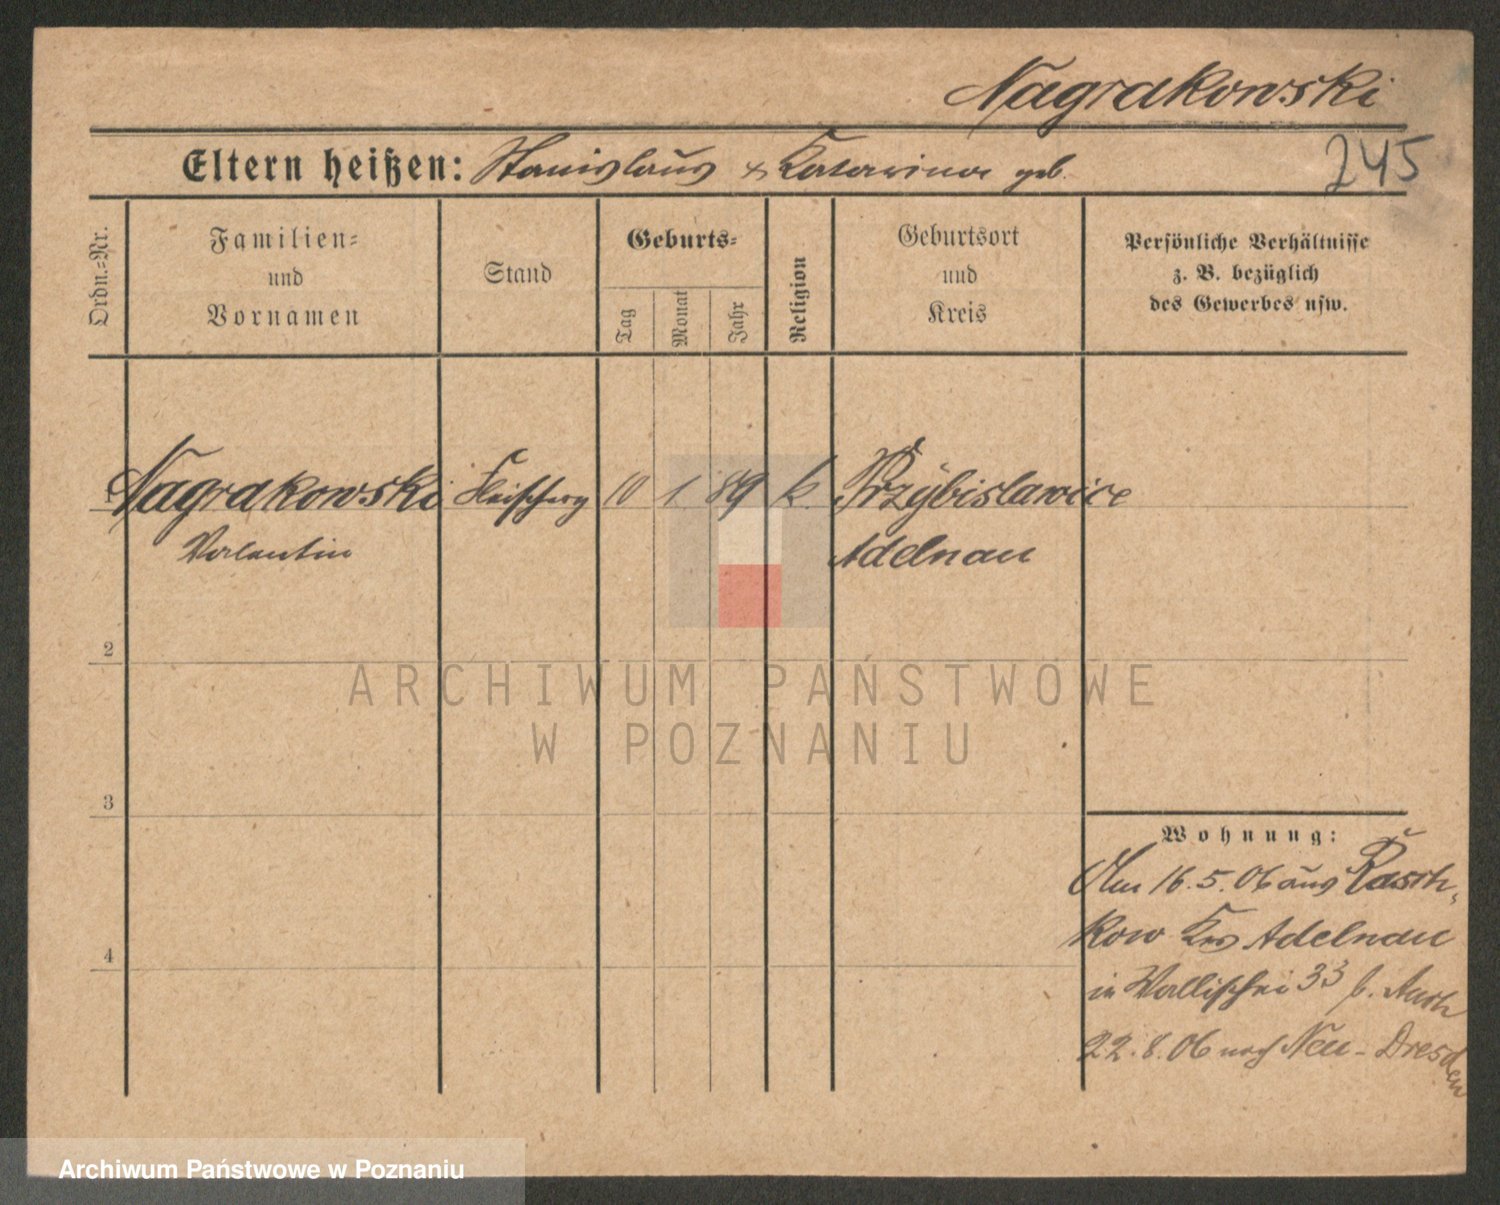 Nagrakowski
245
Eltern heißen: Stanislaus & Katarina geb.
Ordn.-Nr.
Familien-
und
Vornamen
Stand
Geburts-
Tag
Monat
Jahr
Religion
Geburtsort
und
Kreis
Persönliche Verhältnisse
z. B. bezüglich
des Gewerbes usw.
1 Nagrakowski 10 1 89 k. Przybislawice
Valentin Adelnau
2
3
4
Wohnung:
Am 16.5.06 aus Rasch-
kow Krs Adelnau
in Wallischei 33 b.
22.8.06 nach Neu-Dresden
ARCHIWUM PAŃSTWOWE
W POZNANIU
Archiwum Państwowe w Poznaniu